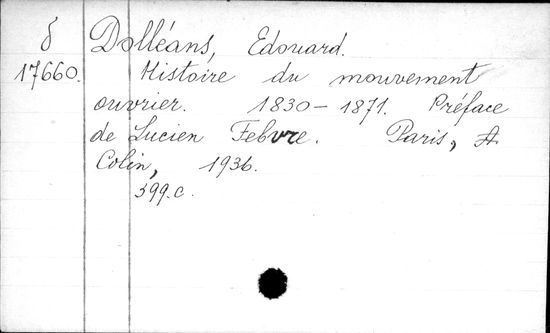 δ Dolléans, Edouard.
17660. Histoire du mouvement
ouvrier. 1830-1871. Préface
de Lucien Febvre. Paris, A
Colin, 1936.
399.c.